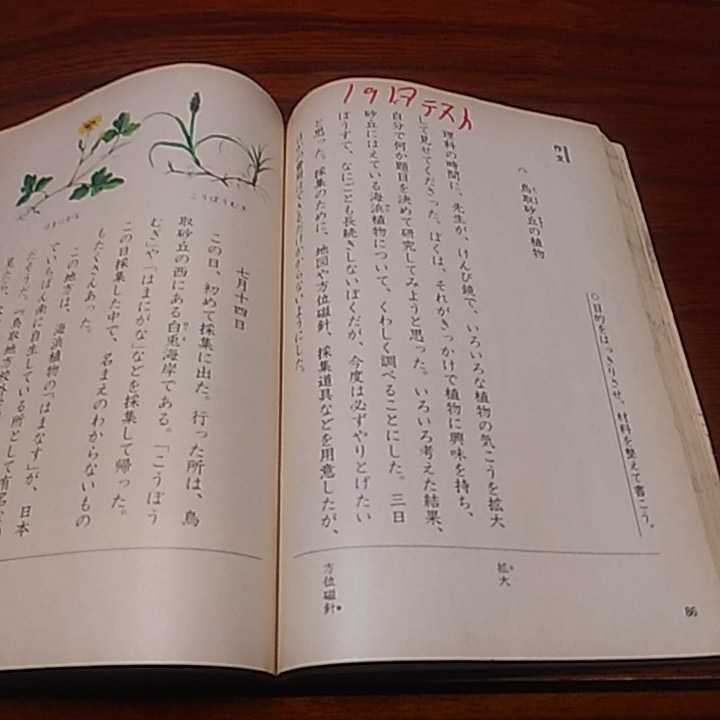 1917テスト
作文
○目的をはっきりさせ、材料を整えて書こう。
鳥取砂丘の植物
理科の時間に、先生が、けんび鏡で、いろいろな植物の気こうを拡大
して見せてくださった。ぼくは、それがきっかけで植物に興味を持ち、
自分で何か題目を決めて研究してみようと思った。いろいろ考えた結果、
砂丘にはえている海浜植物について、くわしく調べることにした。三日
ぼうずで、なにごとも長続きしないぼくだが、今度は必ずやりとげたい
と思った。採集のために、地図や方位磁針、採集道具などを用意したが、
わからないようにした。
拡大
方位磁針
86
こうぼうむぎ
七月十四日
この日、初めて採集に出た。行った所は、鳥
取砂丘の西にある白兎海岸である。「こうぼう
むぎ」や「はまにがな」などを採集して帰った。
この日採集した中で、名まえのわからないもの
もたくさんあった。
この地方は、海浜植物の「はまなす」が、日本
でいちばん南に自生している所として有名
だそうだ。『鳥取地方